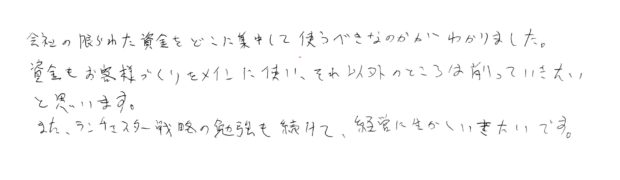 会社の限られた資金をどこに集中して使うべきなのかがわかりました。
資金もお客様づくりをメインに使い、それ以外のところは削っていきたい
と思います。
また、ランチェスター戦略の勉強も続けて、経営に生かしいきたいです。